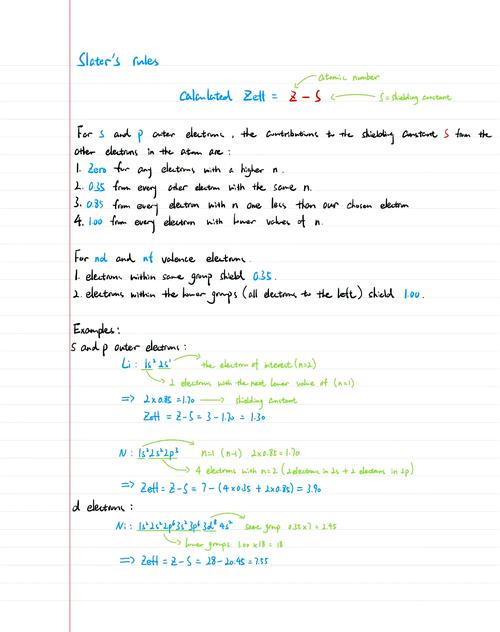 Slater's rules
atomic number
Calculated Zeff = Z - S
S = shielding constant
For s and p outer electrons, the contributions to the shielding constant S from the
other electrons in the atom are:
1. Zero for any electrons with a higher n.
2. 0.35 from every other electron with the same n.
3. 0.85 from every electron with n one less than our chosen electron
4. 1.00 from every electron with lower values of n.
For nd and nf valence electrons.
1. electrons within same group shield 0.35.
2. electrons within the lower groups (all electrons to the left) shield 1.00.
Examples:
S and p outer electrons:
Li: 1s² 2s¹ the electron of interest (n=2)
2 electrons with the next lower value of (n=1)
=> 2×0.85=1.70 shielding constant
Zeff = Z-S = 3-1.70 = 1.30
N: 1s²2s²2p³ n=1 (n-1) 2×0.85=1.70
4 electrons with n=2 (2 electrons in 2s + 2 electrons in 2p)
=> Zeff = Z-S = 7-(4×0.35 + 2×0.85) = 3.90
d electrons:
Ni: 1s² 2s² 2p⁶ 3s² 3p⁶ 3d⁸ 4s² same group 0.35×7=2.45
lower groups 1.00×18=18
=> Zeff = Z-S = 28-20.45=7.55